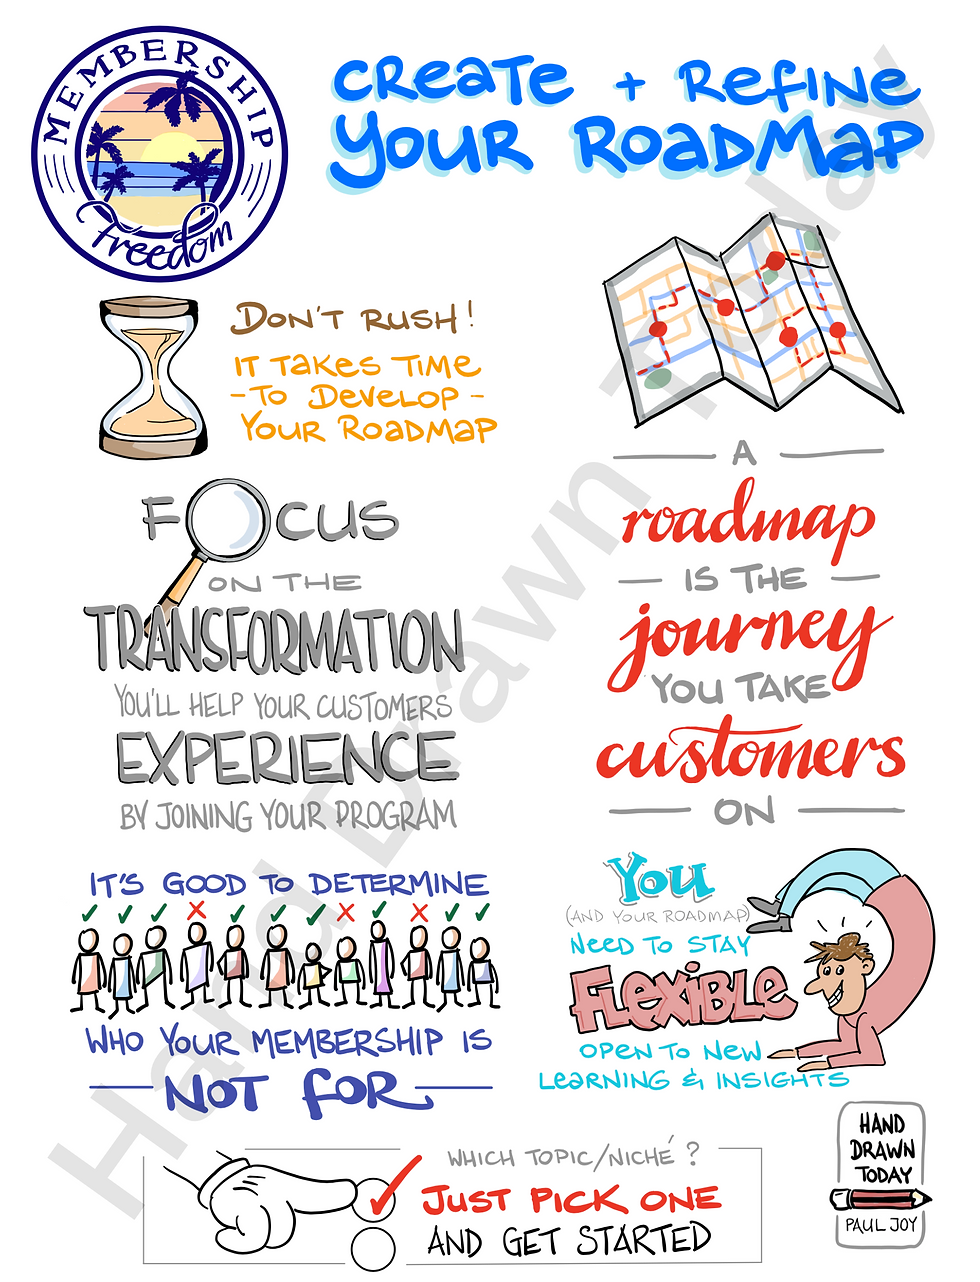 MEMBERSHIP
Freedom
CREATE + REFINE
YOUR ROADMAP
DON'T RUSH!
IT TAKES TIME
- TO DEVELOP -
YOUR ROADMAP
FOCUS
ON THE
TRANSFORMATION
YOU'LL HELP YOUR CUSTOMERS
EXPERIENCE
BY JOINING YOUR PROGRAM
A
roadmap
IS THE
journey
YOU TAKE
customers
ON
IT'S GOOD TO DETERMINE
WHO YOUR MEMBERSHIP IS
NOT FOR
YOU
(AND YOUR ROADMAP)
NEED TO STAY
FLEXIBLE
OPEN TO NEW
LEARNING & INSIGHTS
WHICH TOPIC/NICHÉ?
JUST PICK ONE
AND GET STARTED
HAND
DRAWN
TODAY
PAUL JOY
Hand Drawn Today